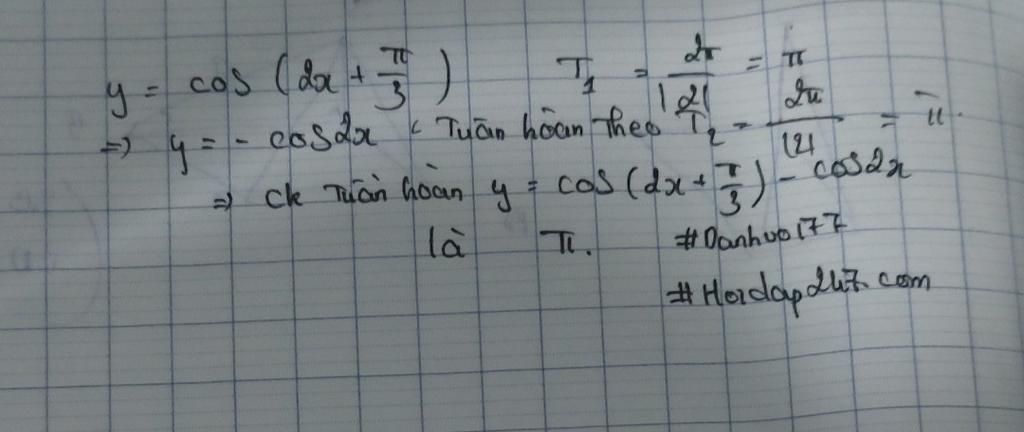 y = cos (2x + π/3) T₁ = 2π/|2| = π
⇒ y = - cos2x < Tuần hoàn theo T₂ = 2π/|2| = π.
⇒ Ck Tuần hoàn y = cos(2x + π/3) - cos2x
là π. #Danhvo177
#Hoidap247.com